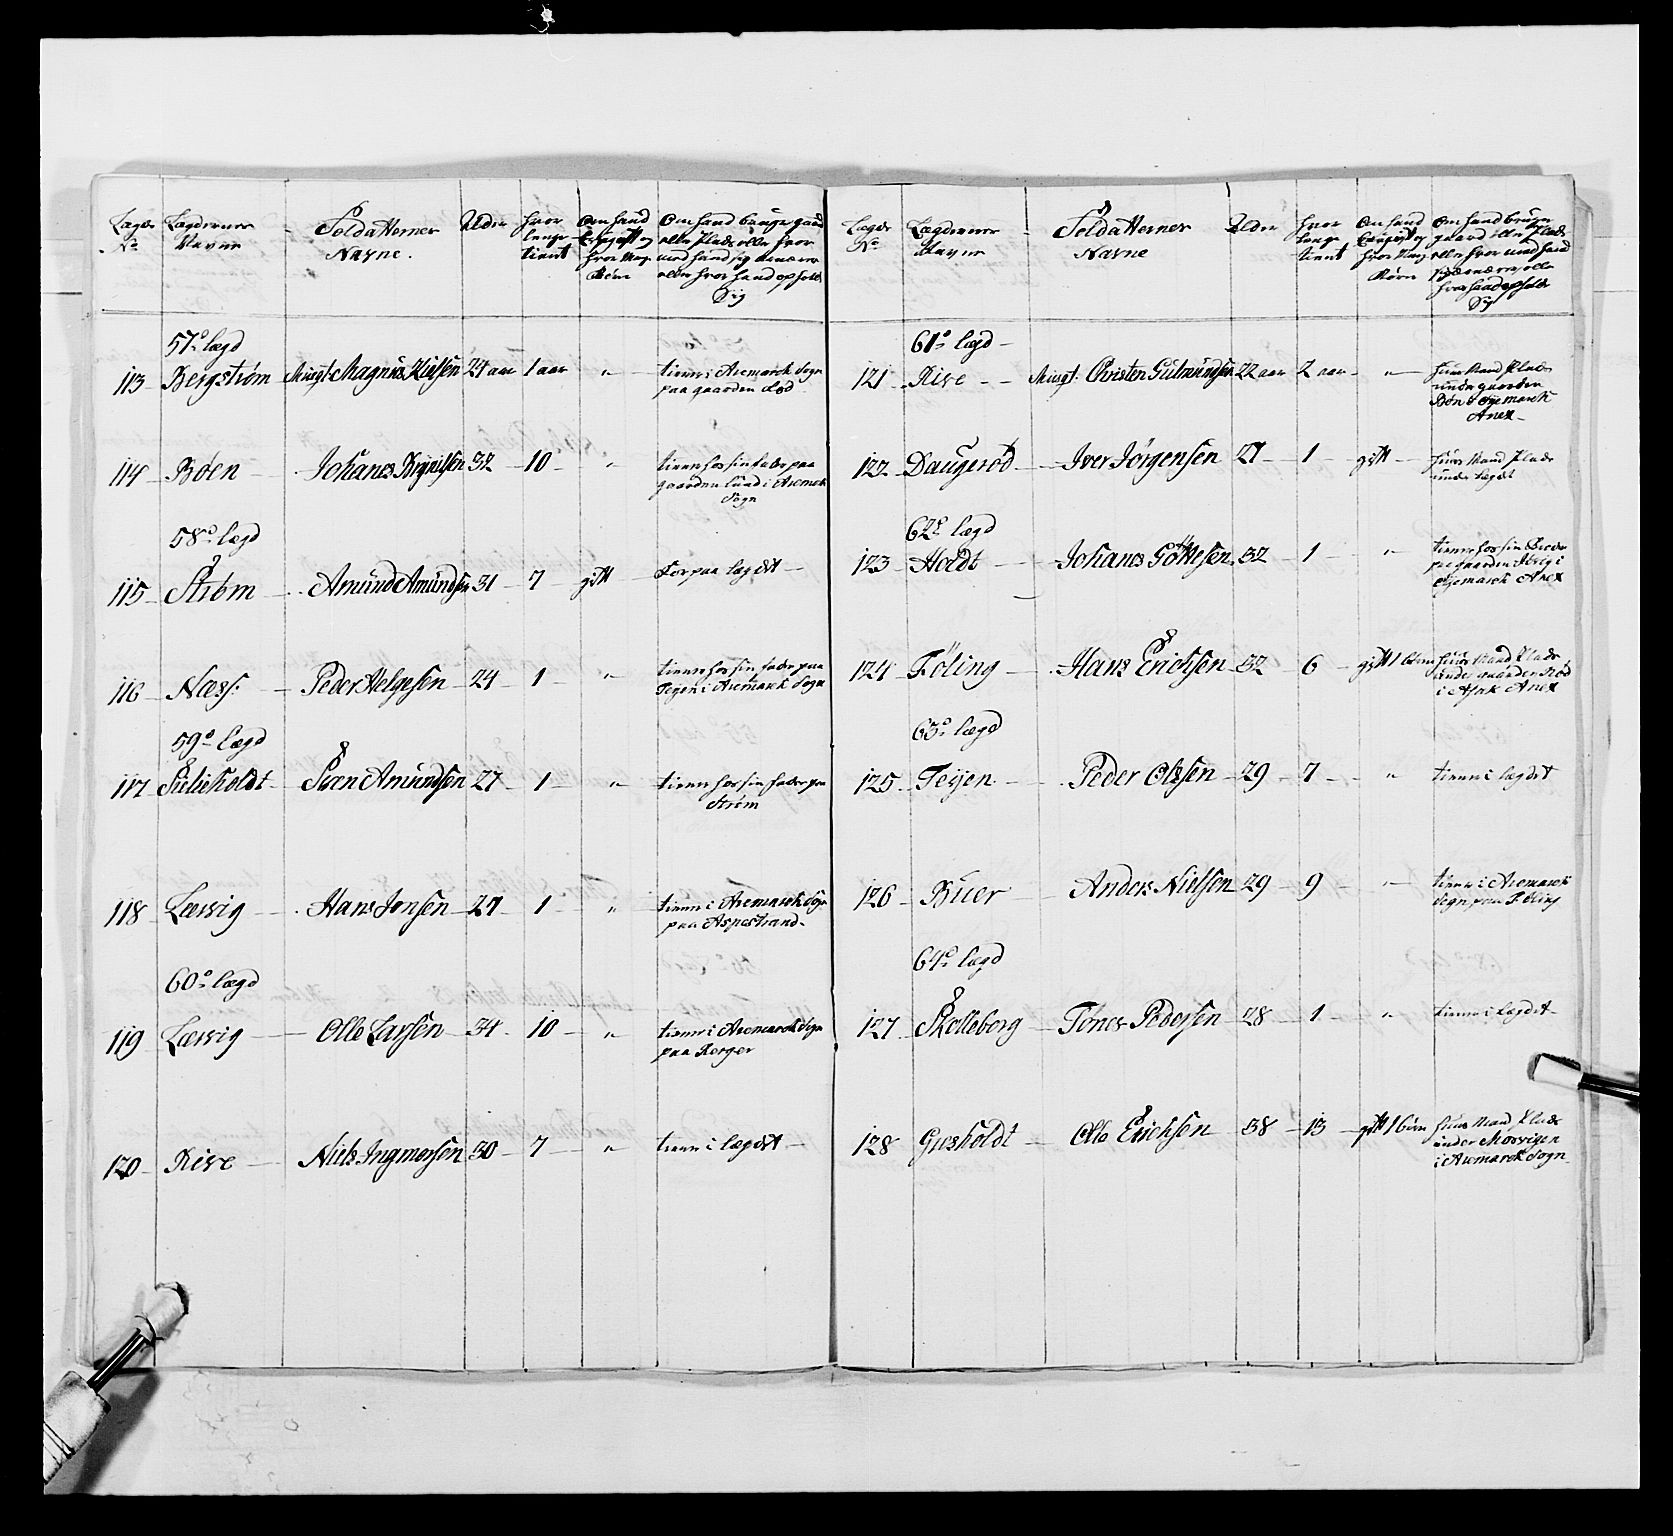 Lægds
No
Lægdernes
Navne
Soldatternes
Navne.
Alder
hvor
længe
tient
Om hand
Er gift og
hvor mange
Børn
Om hand bruge gaard
eller Plads eller hvor
med hand sig ernærer
eller hvor hand opholder
Sig
57de lægd
113 Bergstrøm Musqt. Magnus 24 aar 1 aar " tiener i Aremarck Sogn
paa gaarden
114 Bøen Johanes 32 10 " tiener hos sin fader paa
gaarden Lund i Aremark
Sogn
58de lægd
115 Strøm Amund Amundsen 31 7 gift boer paa lægdet
116 Næss Peder Helgesen 24 1 " tiener hos sin fader paa
Teigen i Aremarck Sogn
59de lægd
117 Sulieholdt Sven Amundsen 27 1 " tiener hos sin fader paa
Strøm
118 Lærvig Hans Jonsen 27 1 " tiener i Aremarck Sogn
paa Aspestrand
60de lægd
119 Lærvig Olle Larsen 34 10 " tiener i Aremarck Sogn
paa Korger
120 Rive Niels Ingmersen 30 7 " tiener i lægdet
Lægds
No
Lægdernes
Navne
Soldatternes
Navne
Alder
hvor
længe
tient
Om hand
Er gift og
hvor mange
Børn
Om hand bruge
gaard eller Plads
eller hvor med hand
sig ernærer eller
hvor hand opholder
Sig
61de lægd
121 Rive Musqt. Christen Gulmundsen 22 aar 2 aar " huus Mand Plads
under gaarden
Bøn i Øyemarck
Anex
122 Daugerød Iver Jørgensen 27 1 gift huus Mand Plads
under lægdet
62de lægd
123 Holdt Johanes 32 1 " tiener hos sin Broder
paa gaarden i
Øyemarck Anex
124 Føling Hans Erichsen 32 6 gift 1 barn huus Mand Plads
under gaarden
i Anex
63de lægd
125 Teijen Peder Olsen 29 7 " tiener i lægdet
126 Buer Anders Nielsen 29 9 " tiener i Aremarck
Sogn paa Føling
64de lægd
127 Skolleborg Tomes Pedersen 28 1 " tiener i lægdet
128 Gresholdt Olle Erichsen 38 13 gift 1 barn huus Mand Plads
under Morvigen
i Aremarck Sogn